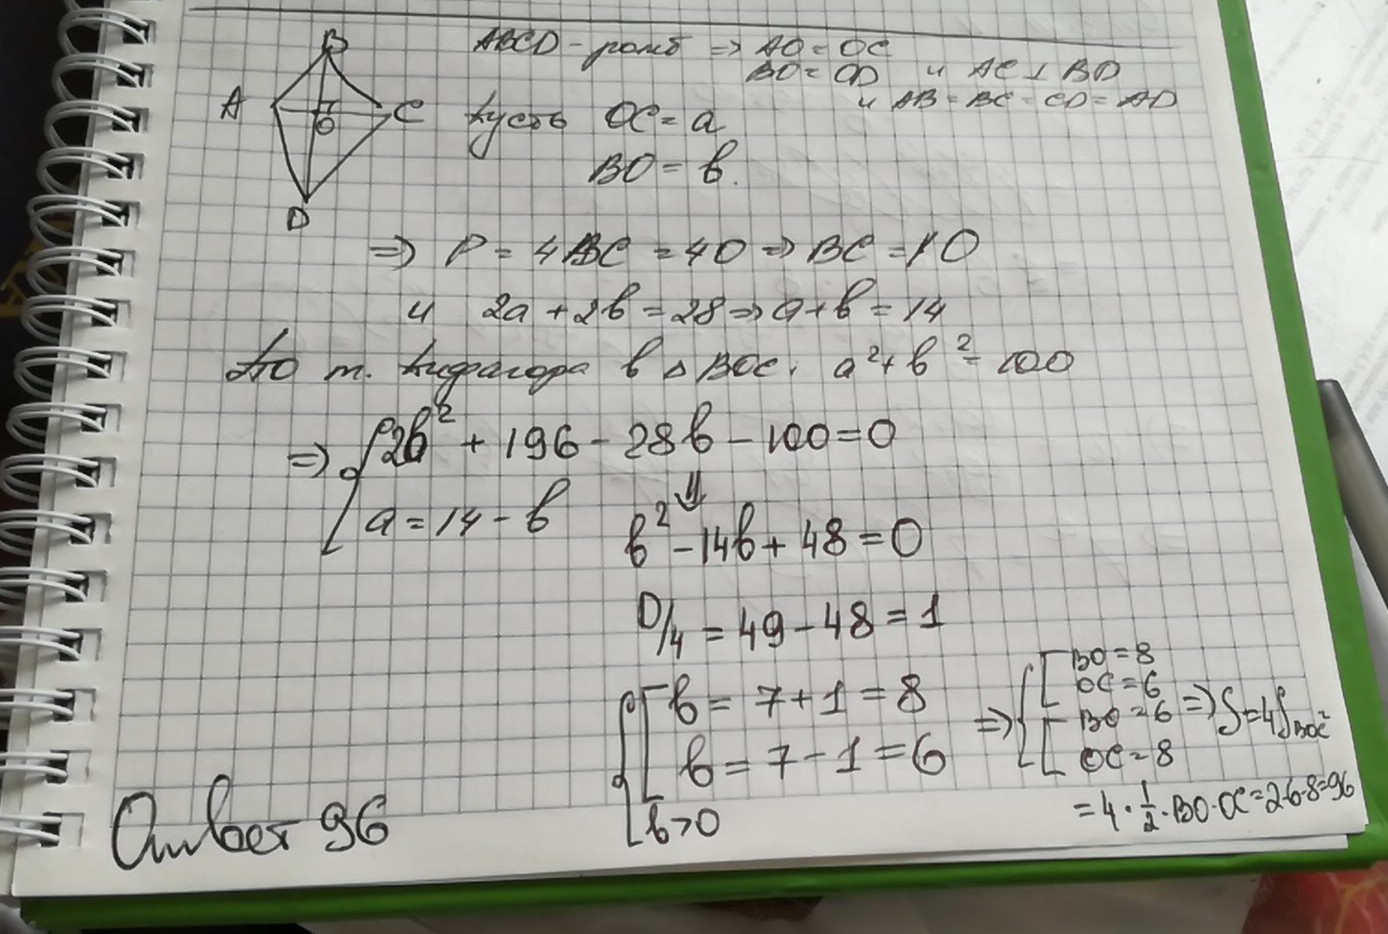 ABCD - ромб ⇒ AO = OC
BO = OD и AC ⊥ BD
и AB = BC = CD = AD
B
A
O
C
D
Пусть OC = a
BO = b.
⇒ P = 4BC = 40 ⇒ BC = 10
и 2a + 2b = 28 ⇒ a + b = 14
По т. Пифагора в △ BOC: a² + b² = 100
⇒ { 2b² + 196 - 28b - 100 = 0
a = 14 - b
⇓
b² - 14b + 48 = 0
D/4 = 49 - 48 = 1
{ [ b = 7 + 1 = 8
b = 7 - 1 = 6
b > 0
⇒ { [ BO = 8
OC = 6
[ BO = 6
OC = 8
⇒ S = 4S BOC =
= 4 · 1/2 · BO · OC = 2·6·8 = 96
Ответ 96